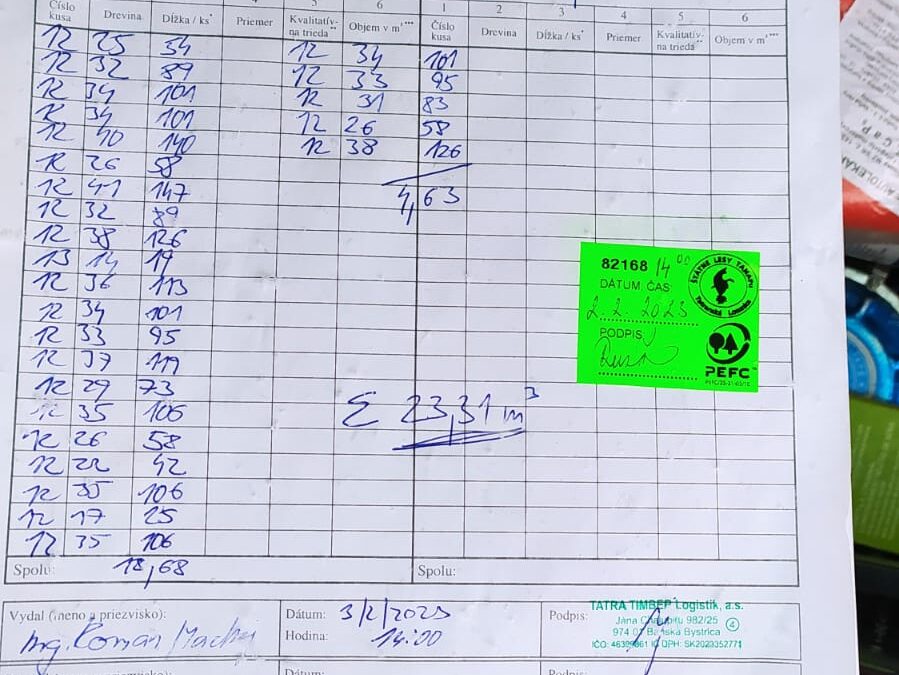 1 2 3 4 5 6
Číslo kusa Drevina Dĺžka / ks* Priemer Kvalitatív- na trieda** Objem v m³*** Číslo kusa Drevina Dĺžka / ks* Priemer Kvalitatív- na trieda** Objem v m³***
12 25 34 12 34 101
12 32 89 12 33 95
12 34 101 12 31 83
12 34 101 12 26 58
12 40 140 12 38 126
12 26 58
12 41 147 4,63
12 32 89
12 38 126
13 14 19
12 36 113
12 34 101
12 33 95
12 37 119
12 29 73
12 35 106 Σ 23,31 m³
12 26 58
12 22 42
12 35 106
12 17 25
12 35 106
Spolu: 18,68 Spolu:
82168 14 00
DÁTUM ČAS
2.2.2023
PODPIS
ŠTÁTNE LESY TANAPU
Tatranská Lomnica
PEFC
Vydal (meno a priezvisko): Ing. Roman
Dátum: 3/2/2023
Hodina: 14:00
Podpis:
TATRA TIMBER Logistik, a.s.
982/25
974 01 Banská Bystrica
4
IČ DPH: SK2023352771
Dátum:
AUTOLEKÁR